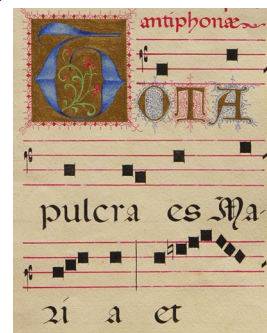 antiphonæ
TOTA
pulcra es Ma
rí a et